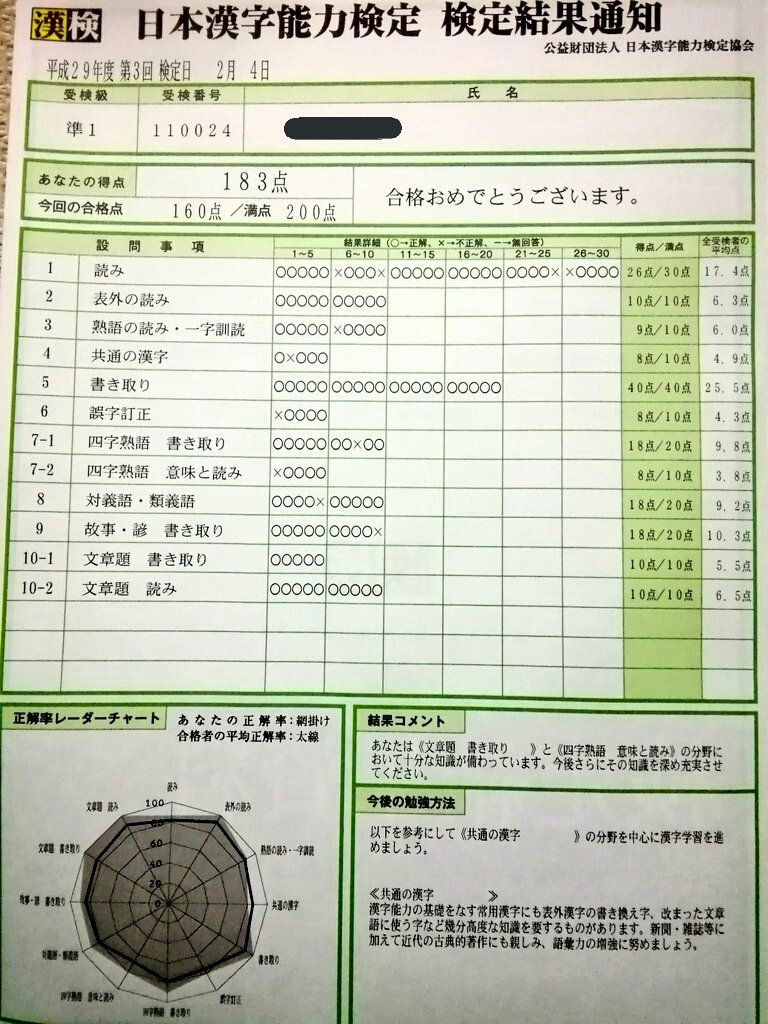 漢検 日本漢字能力検定 検定結果通知
公益財団法人 日本漢字能力検定協会
平成29年度 第3回 検定日 2月 4日
受検級 受検番号 氏名
準1 110024
あなたの得点 183点
今回の合格点 160点 /満点 200点
合格おめでとうございます。
設問事項 結果詳細(○→正解、×→不正解、−→無回答) 得点/満点 全受検者の平均点
1~5 6~10 11~15 16~20 21~25 26~30
1 読み ○○○○○ ×○○○× ○○○○○ ○○○○○ ○○○○× ×○○○○ 26点/30点 17.4点
2 表外の読み ○○○○○ ○○○○○ 10点/10点 6.3点
3 熟語の読み・一字訓読 ○○○○○ ×○○○○ 9点/10点 6.0点
4 共通の漢字 ○×○○○ 8点/10点 4.9点
5 書き取り ○○○○○ ○○○○○ ○○○○○ ○○○○○ 40点/40点 25.5点
6 誤字訂正 ×○○○○ 8点/10点 4.3点
7-1 四字熟語 書き取り ○○○○○ ○○×○○ 18点/20点 9.8点
7-2 四字熟語 意味と読み ×○○○○ 8点/10点 3.8点
8 対義語・類義語 ○○○○× ○○○○○ 18点/20点 9.2点
9 故事・諺 書き取り ○○○○○ ○○○○× 18点/20点 10.3点
10-1 文章題 書き取り ○○○○○ 10点/10点 5.5点
10-2 文章題 読み ○○○○○ ○○○○○ 10点/10点 6.5点
正解率レーダーチャート
あなたの正解率:網掛け
合格者の平均正解率:太線
読み
文章題 読み 100 表外の読み
80
文章題 書き取り 60 熟語の読み・一字訓読
40
20
故事・諺 書き取り 0 共通の漢字
対義語・類義語 書き取り
四字熟語 意味と読み 誤字訂正
四字熟語 書き取り
結果コメント
あなたは《文章題 書き取り 》と《四字熟語 意味と読み》の分野に
おいて十分な知識が備わっています。今後さらにその知識を深め充実させ
てください。
今後の勉強方法
以下を参考にして《共通の漢字 》の分野を中心に漢字学習を進
めましょう。
≪共通の漢字 ≫
漢字能力の基礎をなす常用漢字にも表外漢字の書き換え字、改まった文章
語に使う字など幾分高度な知識を要するものがあります。新聞・雑誌等に
加えて近代の古典的著作にも親しみ、語彙力の増強に努めましょう。